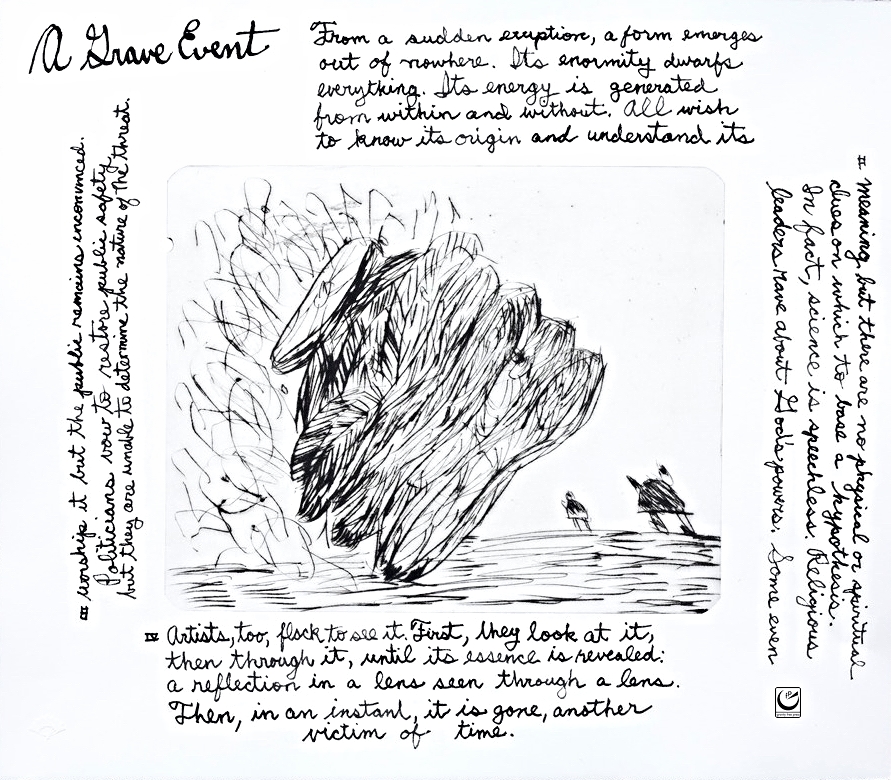 A Grave Event
From a sudden eruption, a form emerges
out of nowhere. Its enormity dwarfs
everything. Its energy is generated
from within and without. All wish
to know its origin and understand its
II meaning, but there are no physical or spiritual
clues on which to base a hypothesis.
In fact, science is speechless. Religious
leaders rave about God's powers. Some even
III worship it but the public remains unconvinced.
Politicians vow to restore public safety
but they are unable to determine the nature of the threat.
IV Artists, too, flock to see it. First, they look at it,
then through it, until its essence is revealed:
a reflection in a lens seen through a lens.
Then, in an instant, it is gone, another
victim of time.